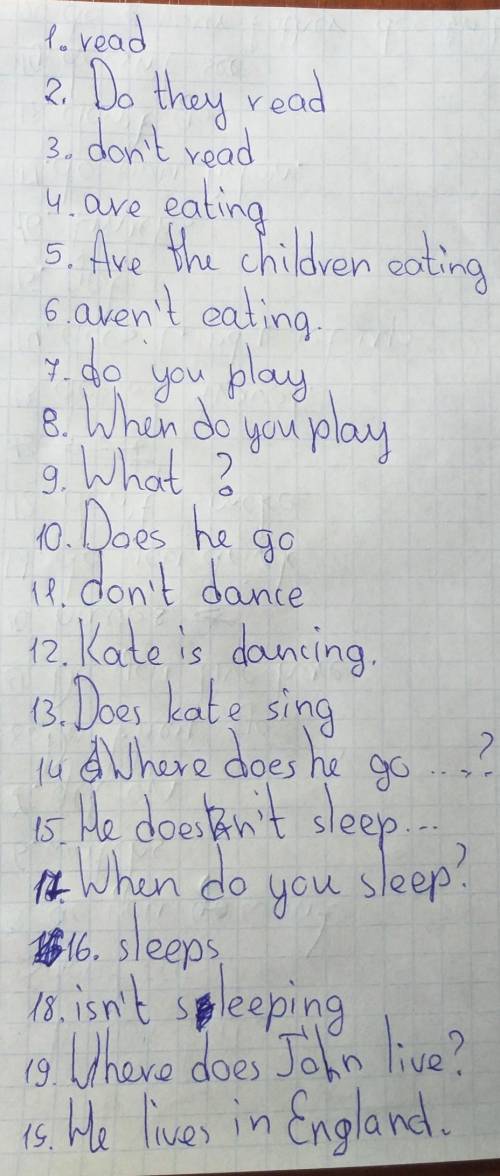 1. read
2. Do they read
3. don't read
4. are eating
5. Are the children eating
6. aren't eating.
7. do you play
8. When do you play
9. What ?
10. Does he go
11. don't dance
12. Kate is dancing.
13. Does kate sing
14 Where does he go ....?
15. He doesn't sleep...
17. When do you sleep?
16. sleeps
18. isn't sleeping
19. Where does John live?
15. He lives in England.